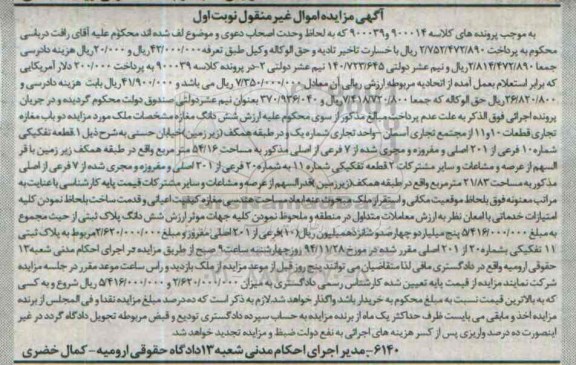 آگهی مزایده اموال غیر منقول نوبت اول
به موجب پرونده های کلاسه ۹۰۰۰۱۴ و ۹۰۰۰۳۹ که به لحاظ وحدت اصحاب دعوی و موضوع لف شده اند محکوم علیه آقای رأفت دریائی
محکوم به پرداخت ۲/۷۵۲/۴۷۲/۸۹۰ ریال با خسارت تاخیر تادیه و حق الوکاله وکیل طبق تعرفه ۴۲/۰۰۰/۰۰۰ ریال و ۲۰/۰۰۰ ریال هزینه دادرسی
جمعا ۲/۸۱۴/۴۷۲/۸۹۰ ریال و نیم عشر دولتی ۱۴۰/۷۲۳/۶۴۵ نیم عشر دولتی ۲-در پرونده کلاسه ۹۰۰۰۳۹ به پرداخت ۲۰۰/۰۰۰ دلار آمریکایی
که برابر استعلام بعمل آمده از اتحادیه مربوطه ارزش ریالی آن معادل ۷/۳۵۰/۰۰۰/۰۰۰ ریال می باشد و ۴۱/۹۰۰/۰۰۰ ریال بابت هزینه دادرسی و
۲۶/۸۲۰/۸۰۰ ریال حق الوکاله که جمعا ۷/۴۱۸/۷۲۰/۸۰۰ ریال و ۳۷۰/۹۳۶/۰۴۰ بعنوان نیم عشر دولتی صندوق دولت محکوم گردیده و در جریان
پرونده اجرائی فوق الذکر به علت عدم پرداخت مبالغ مذکور از سوی محکوم علیه ارزش شش دانگ مغازه مشخصات ملک مورد مزایده دو باب مغازه
تجاری قطعات ۱۰ و ۱۱ از مجتمع تجاری آسمان -واحد تجاری شماره یک و در طبقه همکف (زیر زمین) خیابان حسنی به شرح ذیل ۱ قطعه تفکیکی
شماره ۱۰ فرعی از ۲۰۱ اصلی و مفروزه و مجزی شده از ۷ فرعی از اصلی مذکور به مساحت ۵۴/۱۶ متر مربع واقع در طبقه همکف زیر زمین با قر
السهم از عرصه و مشاعات و سایر مشترکات ۲ قطعه تفکیکی شماره ۱۱ به شماره ۲۰ فرعی از ۲۰۱ اصلی و مفروزه و مجری شده از ۷ فرعی از اصلی
مذکور به مساحت ۲۱/۸۳ متر مربع واقع در طبقه همکف (زیر زمین )قدر السهم از عرصه و مشاعات و سایر مشترکات قیمت پایه کارشناسی با عنایت به
مراتب معنونه فوق بلحاظ موقعیت مکانی و استقرار ملک و کیفیت اعیانی و قدمت ساخت بلحاظ نمودن کلیه
امتیازات خدماتی با امعان نظر به ارزش معاملات متداول در منطقه و ملحوظ نمودن کلیه جهات موثر ارزش شش دانگ پلاک ثبتی از حیث مجموع
به مبلغ ۵/۴۱۶/۰۰۰/۰۰۰ پنج میلیارد و چهارصد و شانزده میلیون ریال (۱۰)فرعی از ۲۰۱ اصلی مفروز و مبلغ ۲/۶۲۰/۰۰۰/۰۰۰ مربوط به پلاک ثبتی
۱۱ تفکیکی بشماره ۲۰ از ۲۰۱ اصلی مقرر شده در مورخ ۹۴/۱۱/۲۸ روز چهارشنبه ساعت ۹ صبح از طریق مزایده در اجرای احکام مدنی شعبه ۱۳
حقوقی ارومیه واقع در دادگستری مافی لذا متقاضیان می توانند پنج روز قبل از موعد مزایده از ملک بازدید و رأس ساعت موعد مقرر در جلسه مزایده
شرکت نمایند مزایده از قیمت پایه تعیین شده کارشناس رسمی دادگستری به میزان ۲/۶۲۰/۰۰۰/۰۰۰ و ۵/۴۱۶/۰۰۰/۰۰۰ ریال شروع و به کسی
که به بالاترین قیمت نسبت به مبلغ محکوم به خریدار باشد واگذار خواهد شد.لازم به ذکر است که ده درصد مبلغ مزایده نقدا و فی المجلس از برنده
مزایده اخذ و مابقی می بایست ظرف حداکثر یک ماه از برنده مزایده به حساب سپرده دادگستری تودیع و قبض مربوطه تحویل دادگاه گردد در غیر
اینصورت ده درصد واریزی پس از کسر هزینه های اجرائی به نفع دولت ضبط و مزایده تجدید خواهد شد.
۶۱۴۰-مدیر اجرای احکام مدنی شعبه ۱۳ دادگاه حقوقی ارومیه - کمال خضری